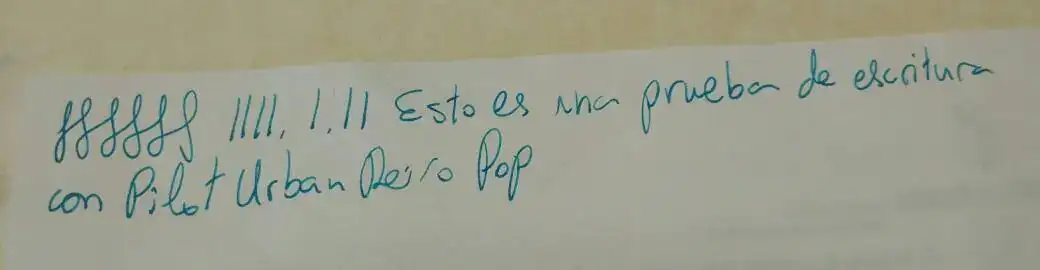 ffffff IIII. I.II Esto es una prueba de escritura
con Pilot Urban Retro Pop